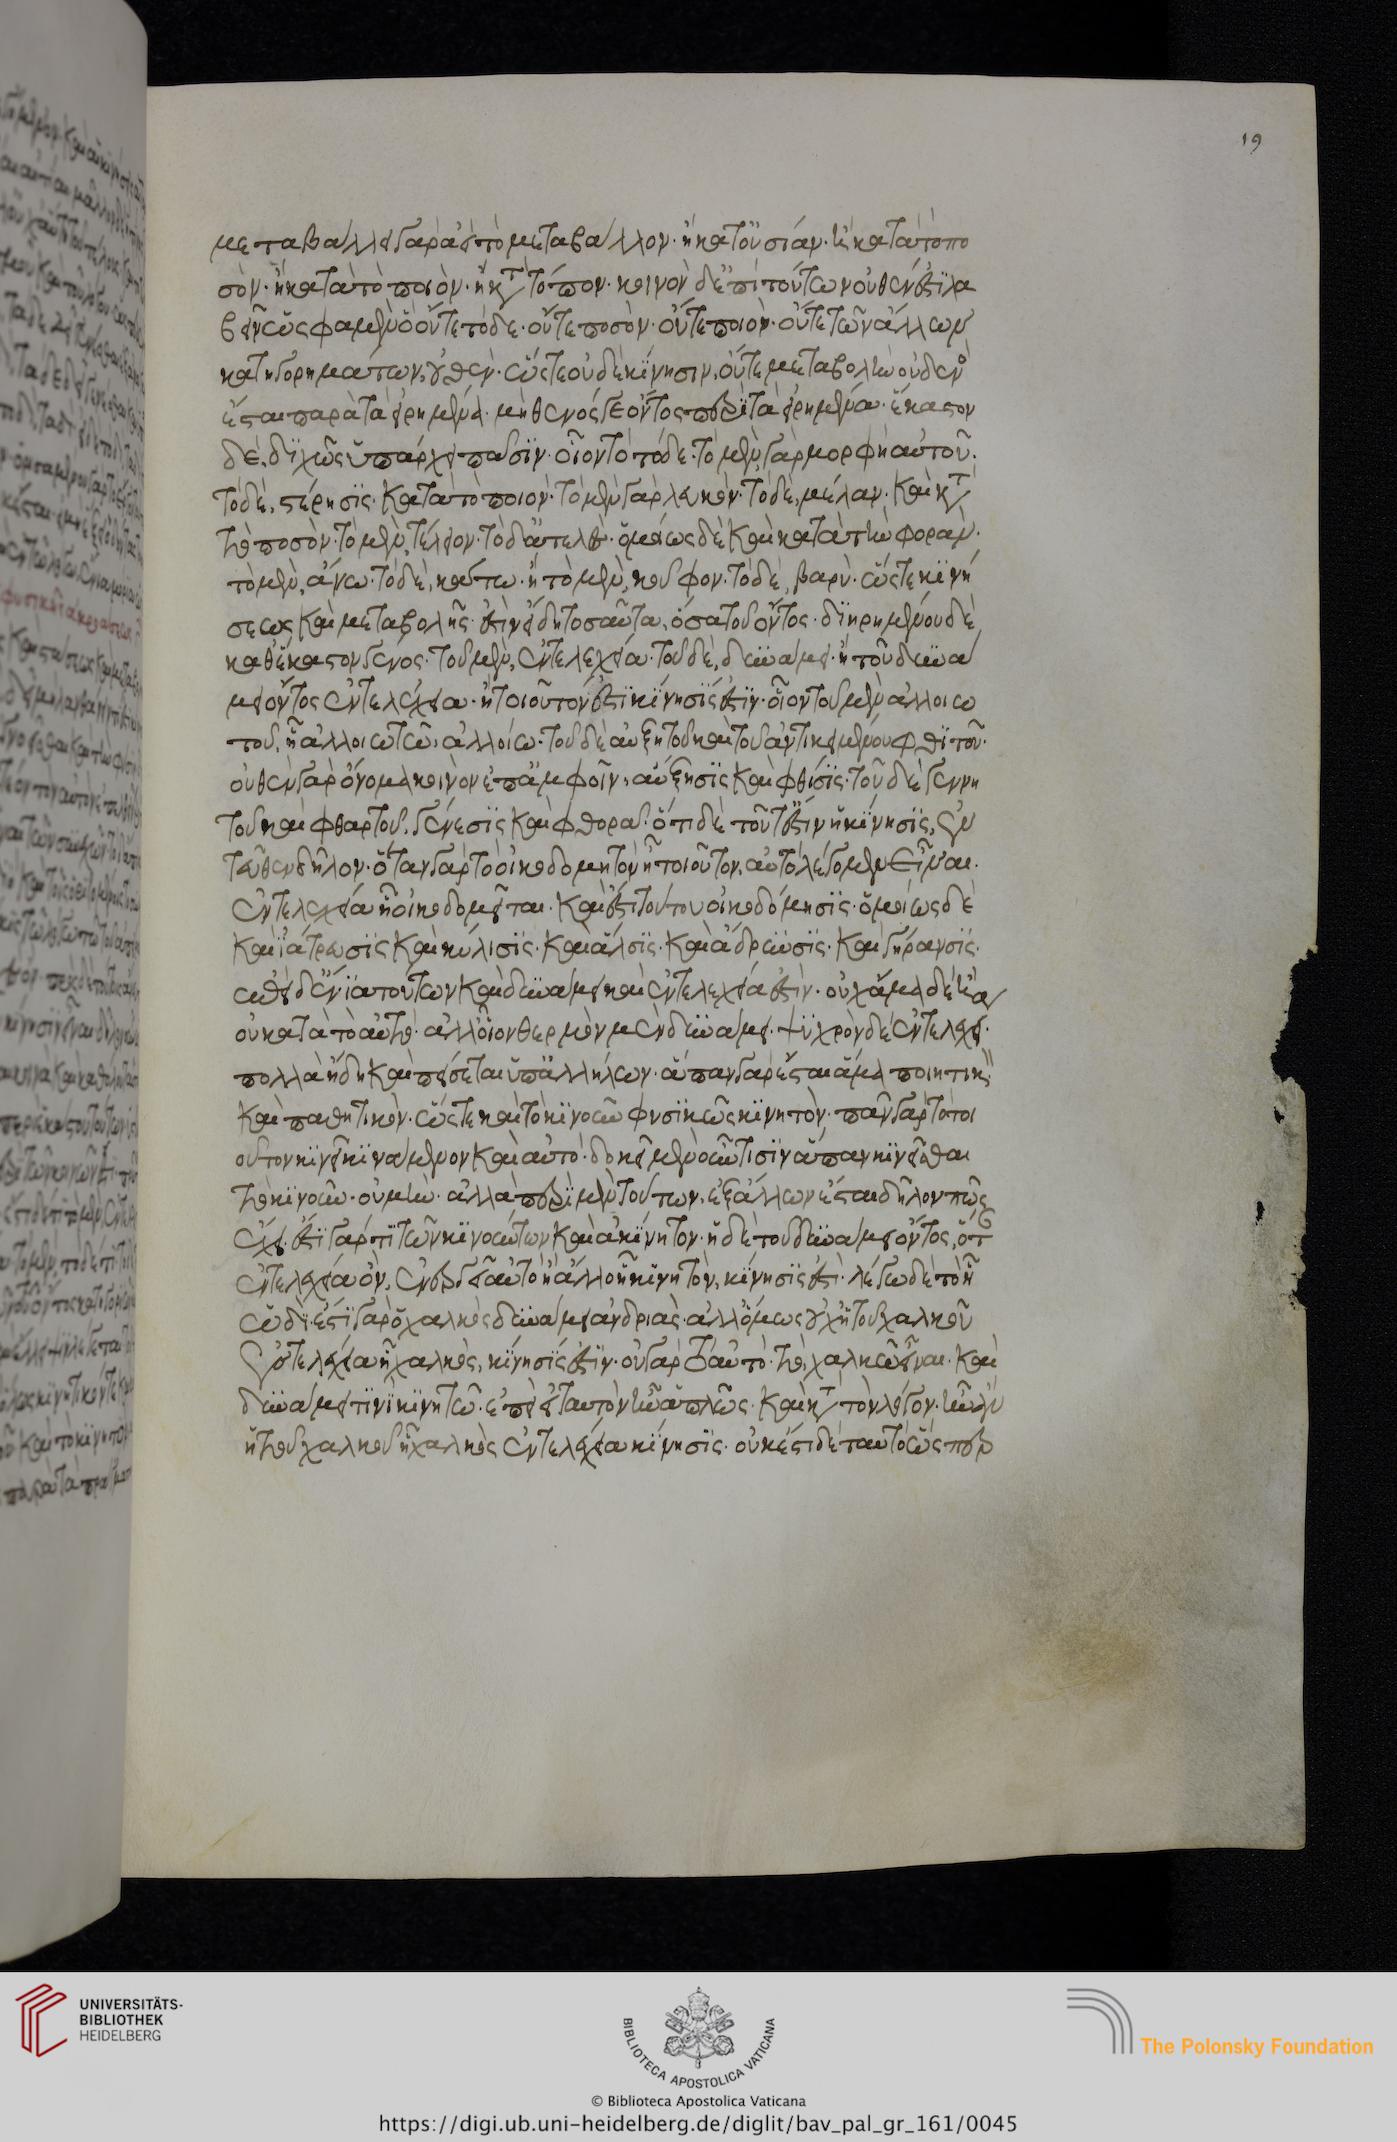 μεταβάλλει γὰρ ἀεὶ τὸ μεταβάλλον· ἢ κατ' οὐσίαν· ἢ κατὰ το πο
σόν· ἢ κατὰ τὸ ποιόν· ἢ κτ τόπον· κοινὸν δ' ἐπὶ τούτων οὐθέν ἐστι λα
βεῖν ὥς φαμεν ὃ οὔτε τόδε· οὔτε ποσόν· οὔτε ποιόν· οὔτε τῶν ἄλλων
κατηγορημάτων, οὐθέν· ὥστε οὐδὲ κίνησιν, οὔτε μεταβολὴν οὐδενὸ
ἔσται παρὰ τὰ εἰρημένα· μηθενός γε ὄντος παρὰ τὰ εἰρημένα· ἕκαστον
δὲ, διχῶς ὑπάρχει πᾶσιν· οἷον τὸ τόδε· τὸ μὲν γὰρ μορφὴ αὐτοῦ·
τὸ δὲ, στέρησις· κατὰ τὸ ποιόν· τὸ μὲν γὰρ λευκόν· τὸ δὲ, μέλαν· καὶ κτ
τὸ ποσόν· τὸ μὲν, τέλειον· τὸ δ' ἀτελές· ὁμοίως δὲ καὶ κατὰ τὴν φοράν·
τὸ μὲν, ἄνω· τὸ δὲ, κάτω· ἢ τὸ μὲν, κοῦφον· τὸ δὲ, βαρύ· ὥστε κινή
σεως καὶ μεταβολῆς· ἐστὶν εἴδη τοσαῦτα, ὅσα τοῦ ὄντος· διηρημένου δὲ
καθ' ἕκαστον γένος· τοῦ μὲν, ἐντελεχεία· τοῦ δὲ, δυνάμει· ἡ τοῦ δυνά
μει ὄντος ἐντελέχεια· ἡ τοιοῦτόν ἐστι κίνησίς ἐστιν· οἷον τοῦ μὲν ἀλλοιω
τοῦ, ἧ ἀλλοιωτῶ, ἀλλοίω· τοῦ δὲ αὐξητοῦ καὶ τοῦ ἀντικειμένου φθιτοῦ·
οὐθὲν γὰρ ὄνομα κοινὸν ἐπ' ἀμφοῖν, αὔξησις καὶ φθίσις· τοῦ δὲ γεννη
τοῦ καὶ φθαρτοῦ, γένεσις καὶ φθορά· ὅτι δὲ τοῦτ' ἐστὶν ἡ κίνησις, ἐν
τεῦθεν δῆλον· ὅταν γὰρ τὸ οἰκοδομητὸν ἧ τοιοῦτον, αὐτὸ λέγομεν εἶναι·
ἐντελεχεία ἧ οἰκοδομεῖται· καὶ ἔστι τοῦτο οἰκοδόμησις· ὁμοίως δὲ
καὶ ἰάτρευσις καὶ κύλισις· καὶ ἅλσις· καὶ ἅδρυνσις· καὶ γήρανσις·
ἐπεὶ δ' ἔνια ταυτῶν καὶ δυνάμει καὶ ἐντελεχεία ἐστίν· οὐχ ἅμα δὲ ἢ
οὐ κατὰ τὸ αὐτό· ἀλλ' οἷον θερμὸν μὲν δυνάμει· ψυχρὸν δὲ ἐντελεχεί·
πολλὰ ἤδη καὶ πείσεται ὑπ' ἀλλήλων· ἅπαν γὰρ ἔσται ἅμα ποιητικ
καὶ παθητικόν· ὥστε καὶ τὸ κινοῦν φυσικῶς κινητόν· πᾶν γὰρ τὸ τοι
οῦτον κινεῖ κινούμενον καὶ αὐτό· δοκεῖ μὲν οὖν τισὶν ἅπαν κινεῖσθαι
τὸ κινοῦν· οὐ μὴν· ἀλλὰ περὶ μὲν τούτων, ἐξ ἄλλων ἔσται δῆλον πῶς
ἔχει· ἔστι γάρ τι τῶν κινούντων καὶ ἀκίνητον· ἡ δὲ τοῦ δυνάμει ὄντος, ὅτ
ἐντελεχεία ὂν, ἐνεργεῖ αὐτὸ ἢ ἄλλο ἧ κινητὸν, κίνησίς ἐστι· λέγω δὲ τὸ ἧ
ὡδί· ἔστι γὰρ ὁ χαλκὸς δυνάμει ἀνδριάς· ἀλλ' ὅμως οὐχ ἡ τοῦ χαλκοῦ
ἐντελεχεία ἧ χαλκὸς, κίνησίς ἐστιν· οὐ γὰρ τὸ αὐτὸ· τὸ, χαλκῶ εἶναι· καὶ
δυνάμει τινὶ κινητῶ· ἐπεὶ εἰ ταυτὸν ἦν ἁπλῶς· καὶ κτ τὸν λόγον· ἦν ἂν
ἡ τοῦ χαλκοῦ ἧ χαλκὸς ἐντελέχεια κίνησις· οὐκ ἔστι δὲ ταυτὸ ὥσπερ
19
UNIVERSITÄTS-
BIBLIOTHEK
HEIDELBERG
BIBLIOTECA APOSTOLICA VATICANA
The Polonsky Foundation
© Biblioteca Apostolica Vaticana
https://digi.ub.uni-heidelberg.de/diglit/bav_pal_gr_161/0045